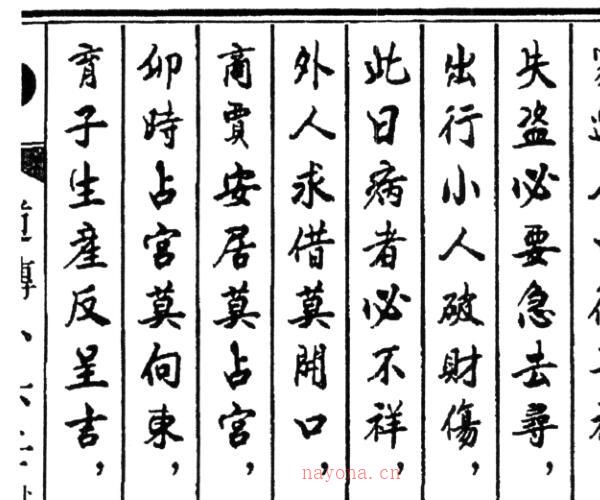 失盜必要急去尋，
出行小人破財傷，
此日病者必不祥，
外人求借莫開口，
商賈安居莫占宮，
卯時占宮莫向東，
育子生産反呈吉，
nayona.cn